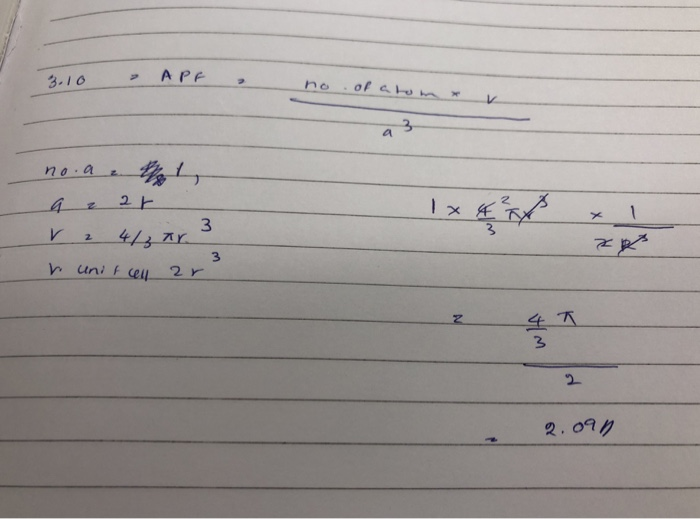 3.10 = APF = no. of atom × v
a³
no. a = 1,
a = 2r
v = 4/3 πr³
v unit cell 2r³
1 × 4² πr³ × 1
3 2r³
= 4 π
3
2
= 2.09